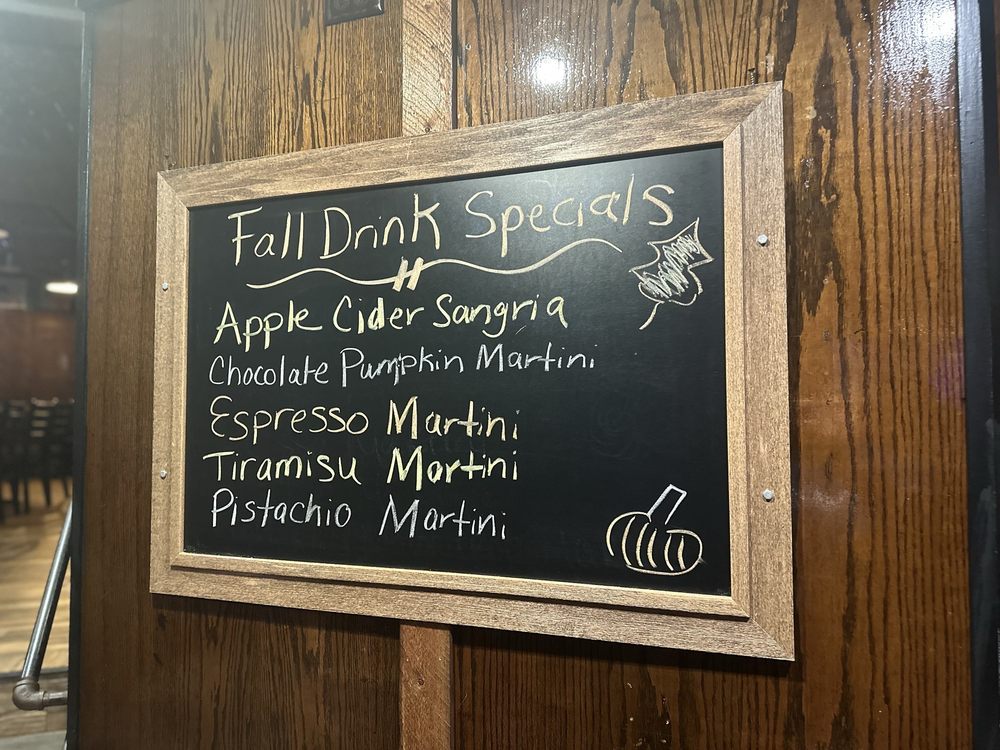 Fall Drink Specials
Apple Cider Sangria
Chocolate Pumpkin Martini
Espresso Martini
Tiramisu Martini
Pistachio Martini